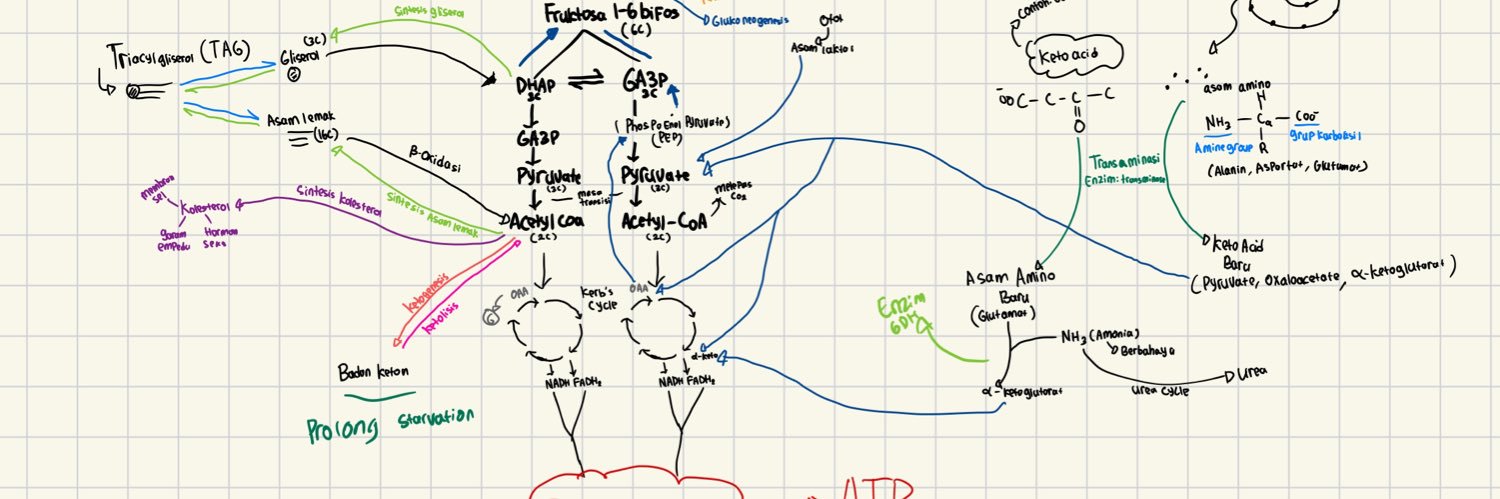 Sintesis gliserol
Fruktosa 1-6 bifos
(6C)
Glukoneogenesis
Otot
Asam laktat
Keto acid
Triacylgliserol (TAG)
(3C)
Gliserol
DHAP
3C
GA3P
3C
-OOC - C - C - C
O
asam amino
H
NH3 - Cα - COO-
R
Amine group
grup karboksil
(Alanin, Aspartat, Glutamat)
Asam lemak
(16C)
GA3P
(Phospoenol Pyruvate)
(PEP)
β-Oxidasi
Transaminasi
Enzim: transaminase
Pyruvate
(3C)
Pyruvate
(3C)
masa
transisi
melepas
CO2
membran
sel
Kolesterol
garam
empedu
Hormon
seks
Sintesis kolesterol
Sintesis Asam lemak
Acetyl coa
(2C)
Acetyl-CoA
(2C)
Keto Acid
Baru
(Pyruvate, Oxaloacetate, α-ketoglutarat)
Asam Amino
Baru
(Glutamat)
ketogenesis
ketolisis
OAA
Kerb's
Cycle
OAA
α-keto
Enzim
GDH
NH3 (Amonia)
Berbahaya
Urea cycle
Urea
α-ketoglutarat
Badan keton
NADH FADH2
NADH FADH2
Prolong starvation
ATP